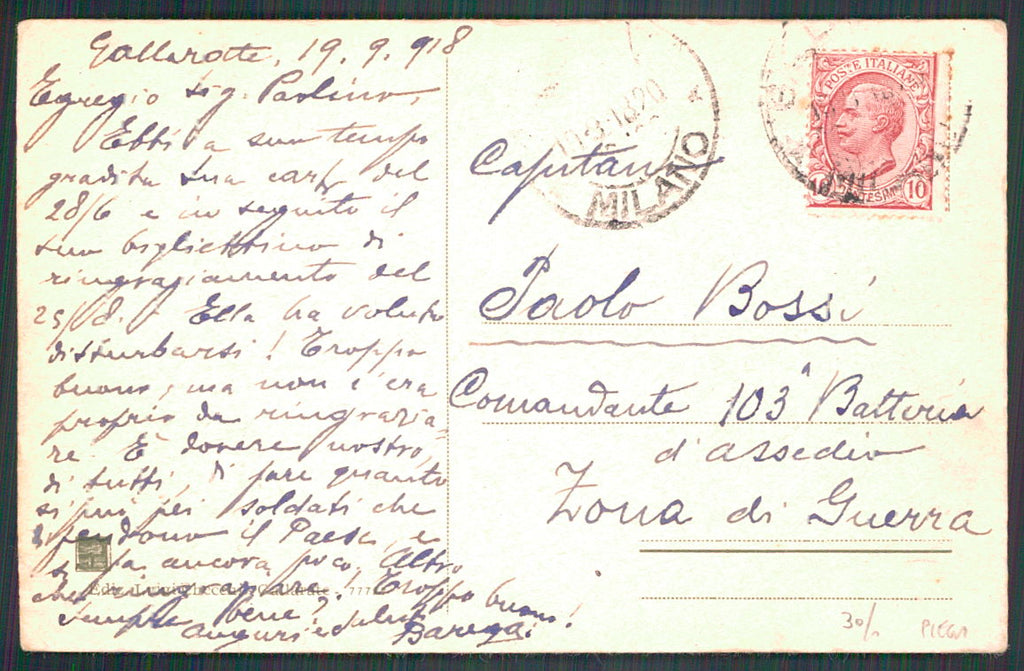 Gallarate, 19.9.918
Egregio Sig. Paolino,
Ebbi a suo tempo
gradita sua cart. del
28/6 e in seguito il
suo bigliettino di
ringraziamento del
25/8. Ella ha voluto
disturbarsi! Troppo
buono, ma non c'era
proprio da ringrazia-
re. È dovere nostro,
di tutti, di fare quanto
si può pei soldati che
difendono il Paese, e
si fa ancora poco. Altro
che ringraziare! Troppo buono!
Sempre bene?
auguri e saluti
Baregai
Ediz. Luigi Gallarate 777
MILANO
POSTE ITALIANE
CENTESIMI 10
Capitano
Paolo Bossi
Comandante 103ª Batteria
d'assedio
Zona di Guerra
30/
PIEGA